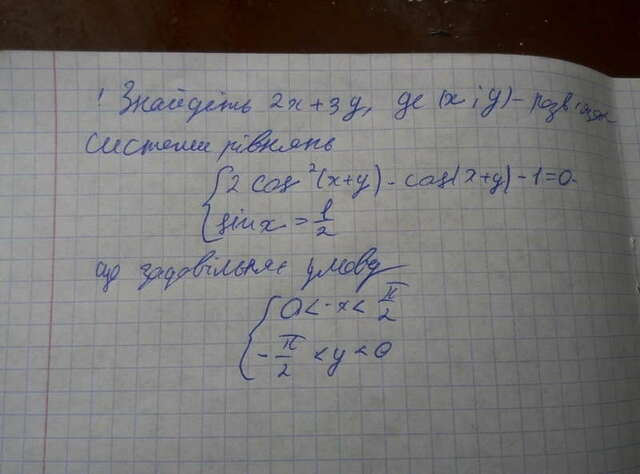 ! Знайдіть 2x+3y, де (x; y) - розв'язок
системи рівнянь
{ 2 cos²(x+y) - cos(x+y) - 1 = 0
sin x = 1/2
що задовільняє умову
{ 0 < x < π/2
-π/2 < y < 0